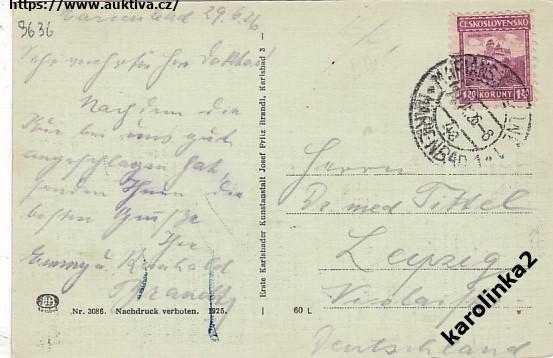 https://www.auktiva.cz/
3636
Marienbad 29.6.26
Sehr verehrter Herr Doktor
Nachdem die
Kur bei uns gut
angeschlagen hat,
senden Ihnen die
besten Grüsse
Ihre
Emmy u. Reinhold
Erste Karlsbader Kunstanstalt Josef Fritz Brandl, Karlsbad 3
Nr. 3086. Nachdruck verboten. 1925.
60 L
ČESKOSLOVENSKO
1·20 KORUNY 1·20
MARIENBAD
Herrn
Dr. med Tittel
Leipzig
Deutschland
karolinka2